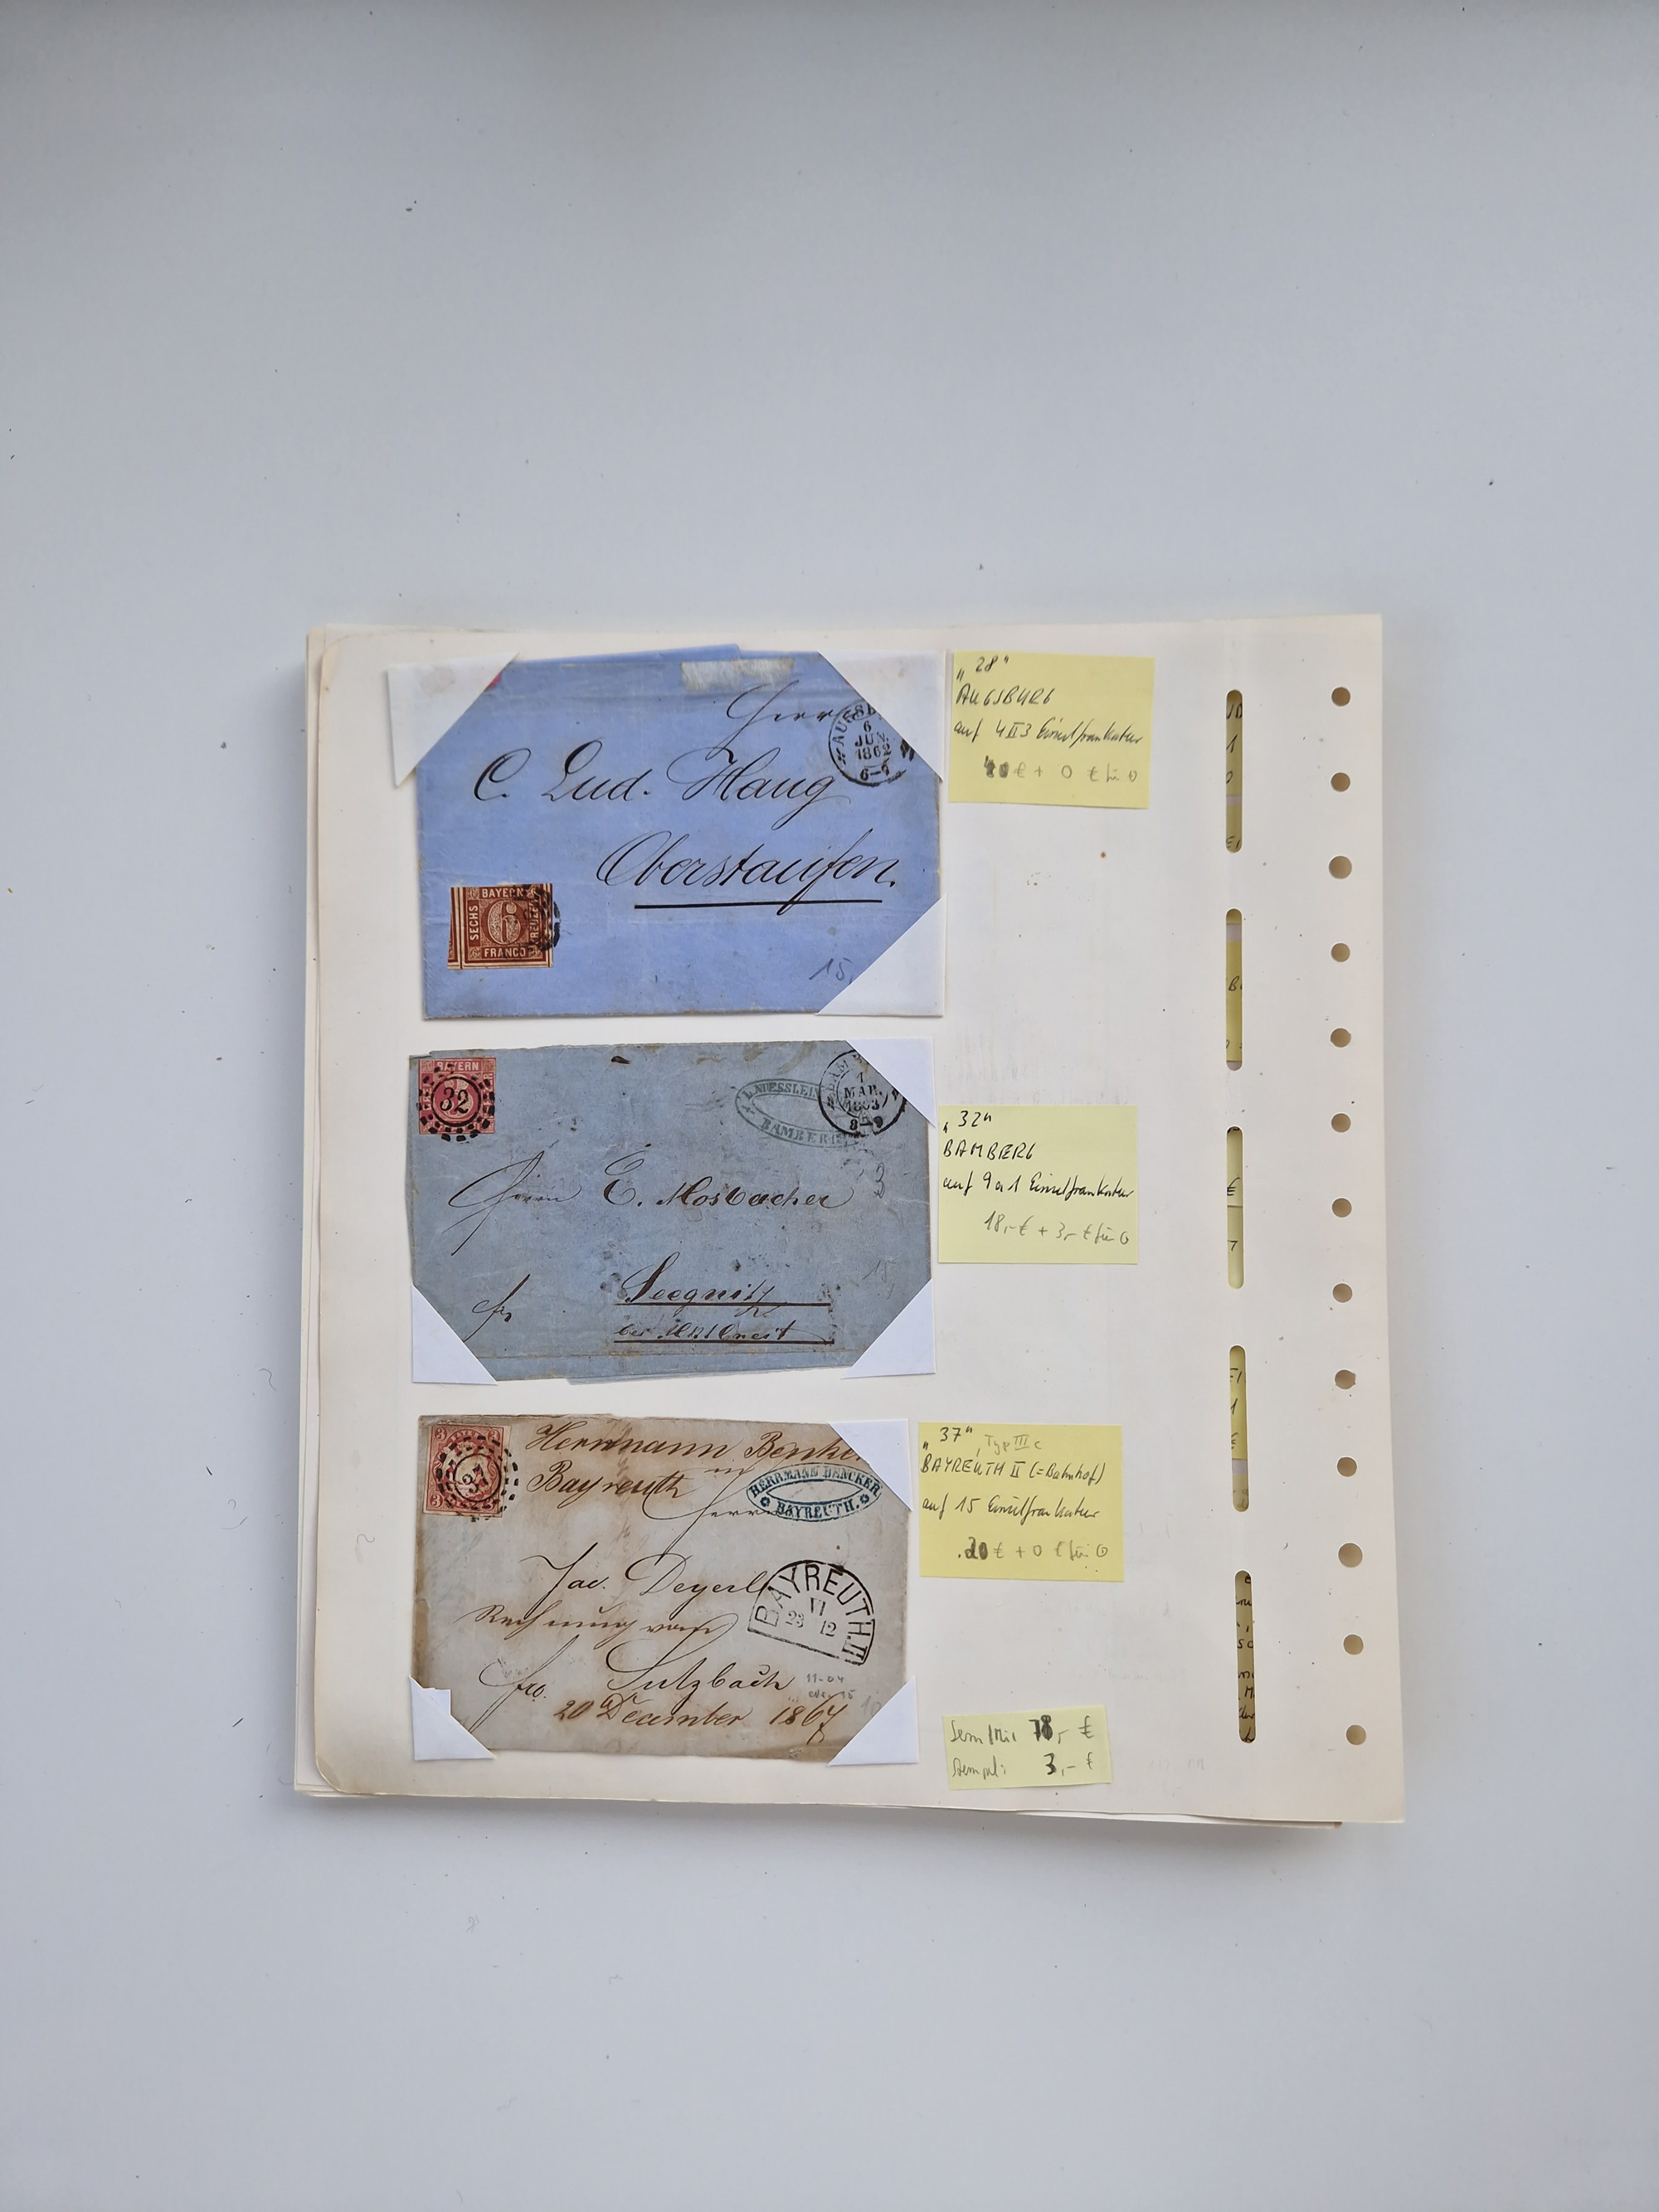 Herrn
AUGSB
6
JUN
1862
6-7
C. Lud. Haug
Oberstaufen.
BAYERN
SECHS
6
KREUZER
FRANCO
15,
"28"
AUGSBURG
auf 4 II 3 Einzelfrankatur
€ + 0 € für
BAYERN
32
BAMBERG
MAR.
1863
8-9
Herrn E. Mosbacher
3
fr
Seegnitz
bei
15
"32"
BAMBERG
auf 9 a 1 Einzelfrankatur
18,- € + 3,- € für
3
3
3
37
Herrmann
Bayreuth
HERRMANN BENCKER
BAYREUTH.
Herrn
Jac. Deyerl
Rechnung vom
BAYREUTH.II
VI
23 12
fro. Sulzbach
11-04
20 December 1867
"37", Typ III c
BAYREUTH II (=Bahnhof)
auf 15 Einzelfrankatur
20 € + 0 € für
78,- €
Stempel: 3,- €